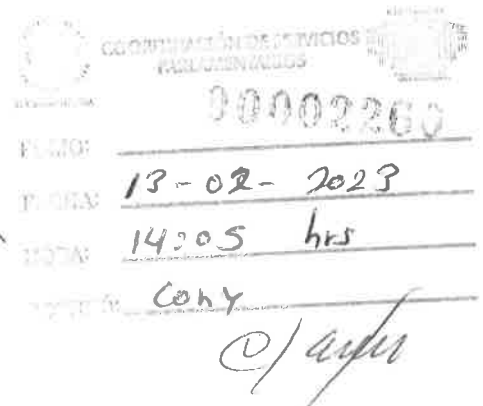 COORDINACIÓN DE SERVICIOS
PARLAMENTARIOS
00002260
FOLIO:
FECHA: 13-02-2023
HORA: 14:05 hrs
Cony